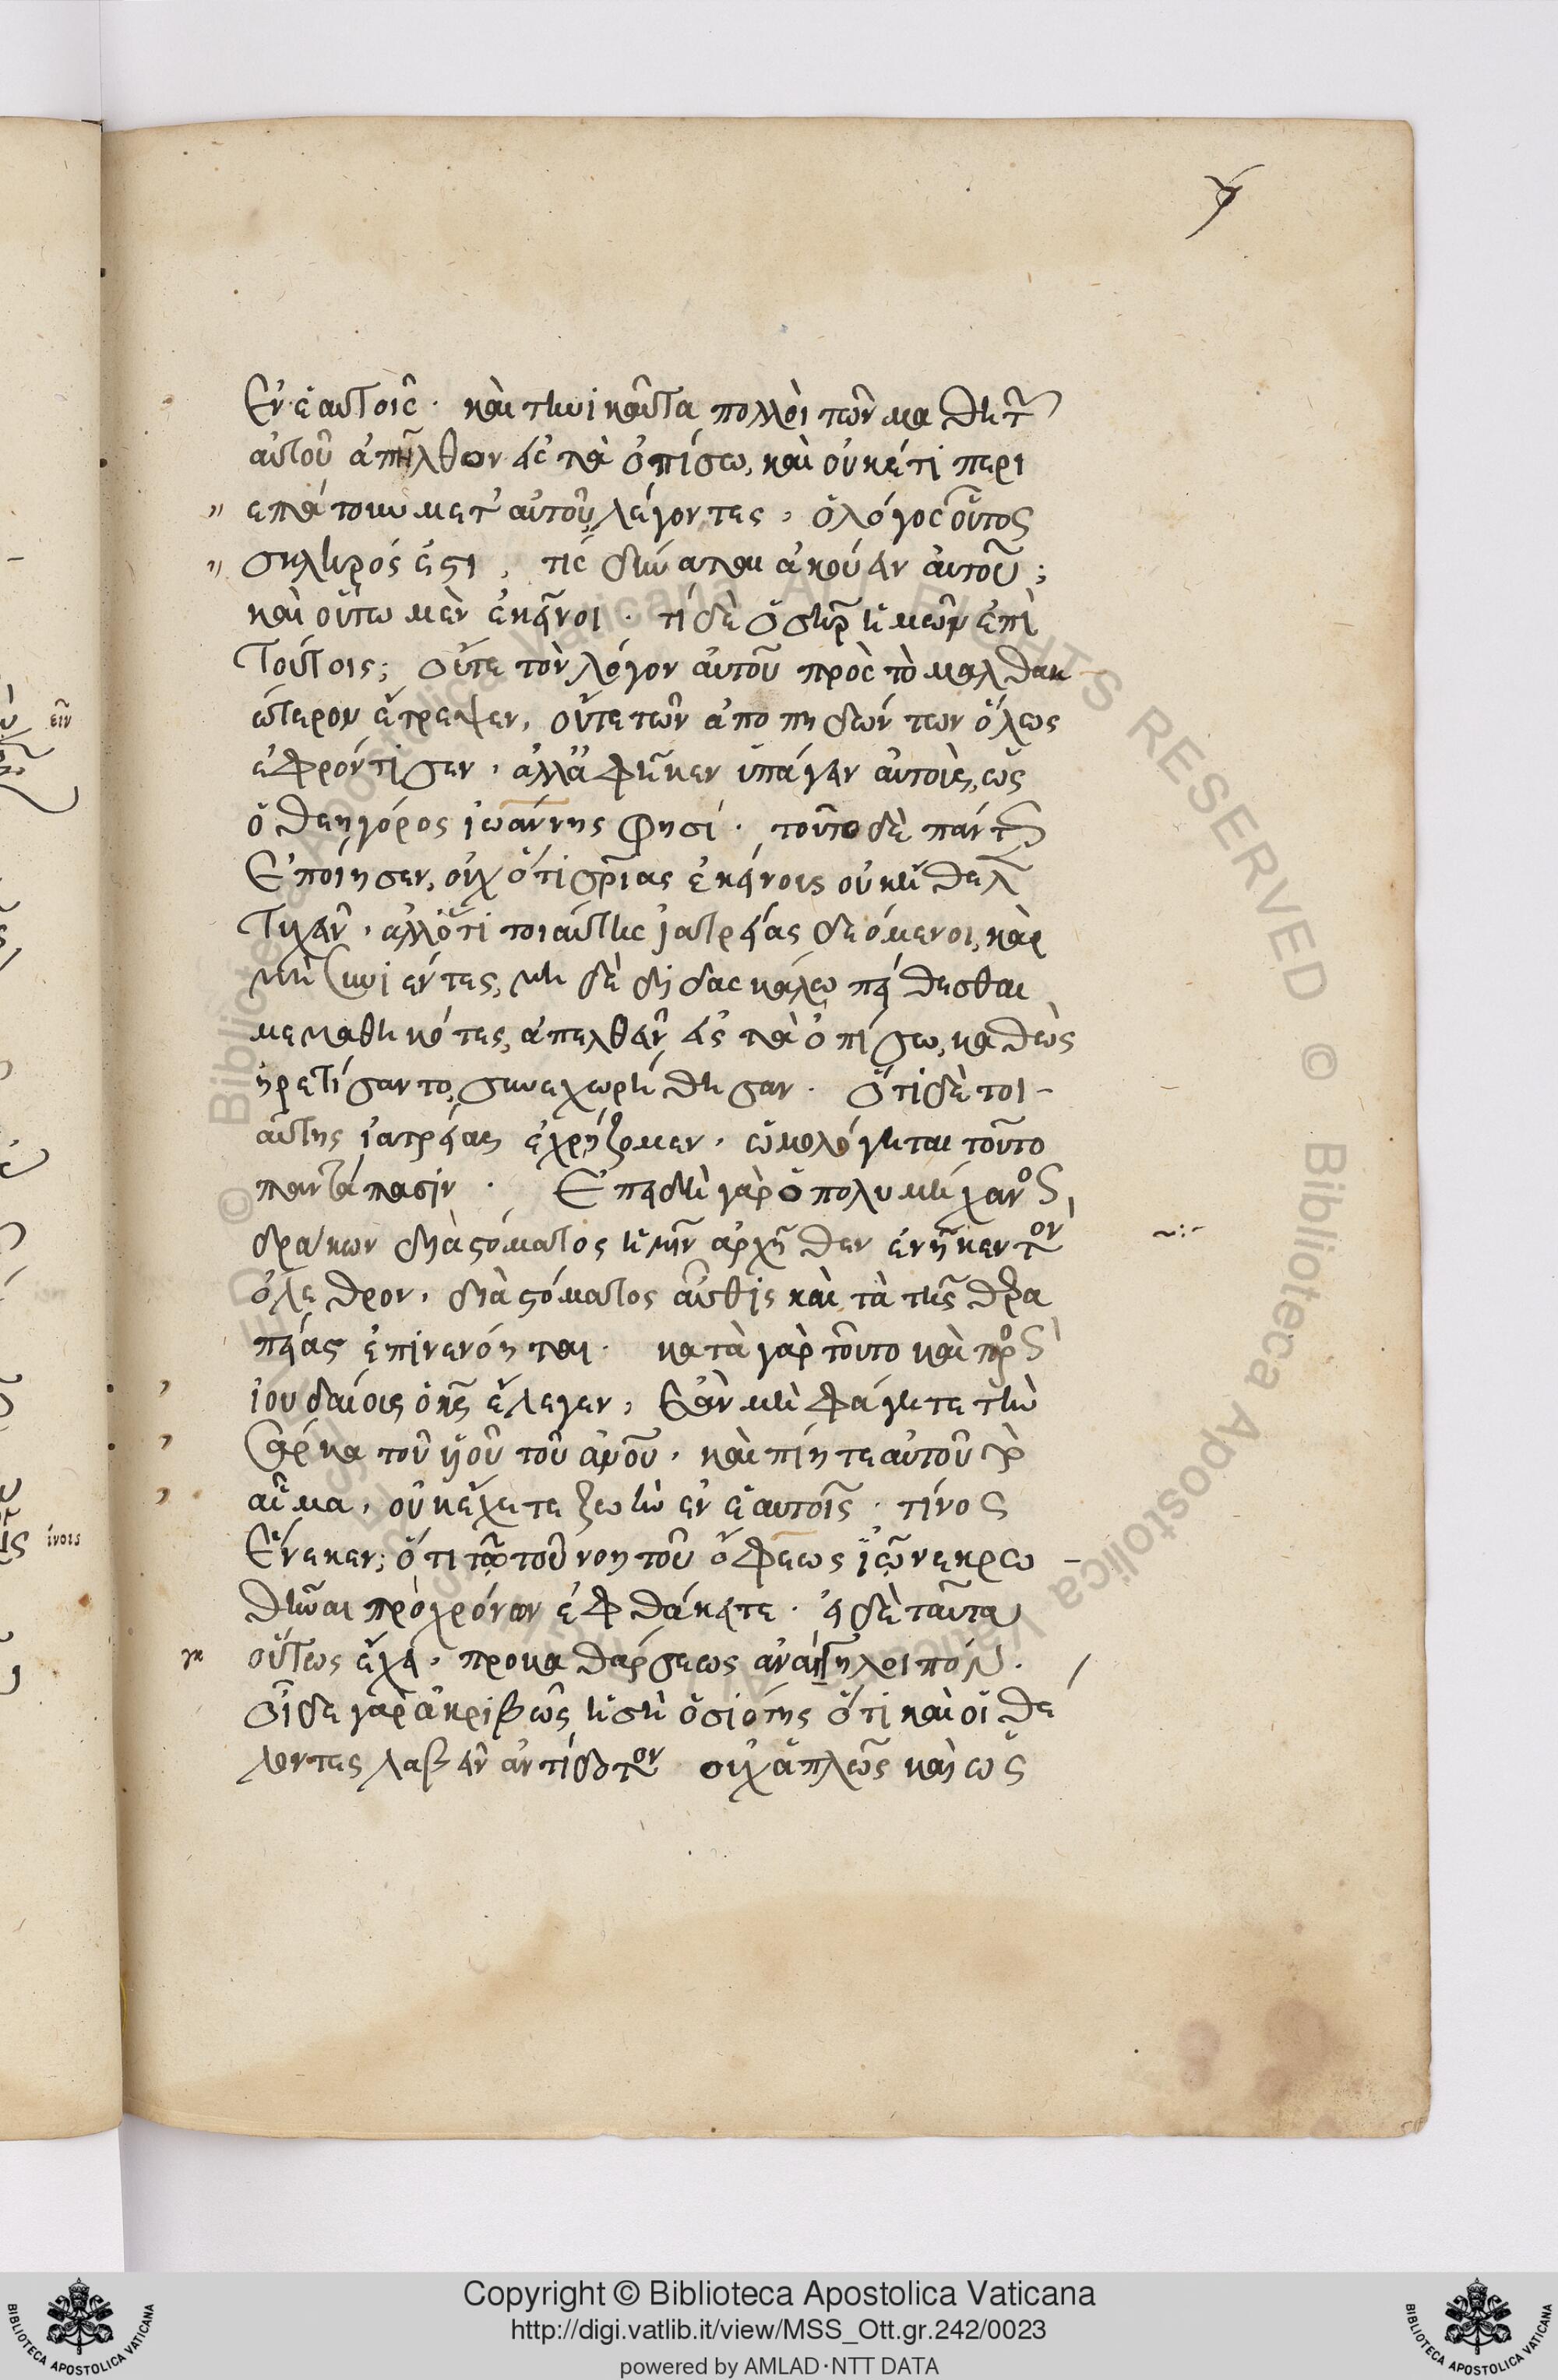 ἐν ἑαυτοῖς· καὶ τηνικαῦτα πολλοὶ τῶν μαθητ
αὐτοῦ ἀπῆλθον εἰς τὰ ὀπίσω, καὶ οὐκέτι περι
επάτουν μετ' αὐτοῦ, λέγοντες, ὁ λόγος οὗτος
σκληρός ἐστι, τίς δύναται ἀκούειν αὐτοῦ;
καὶ οὕτω μὲν ἐκεῖνοι· τί δὲ ὁ σηρ ἡμῶν ἐπὶ
τούτοις; οὔτε τὸν λόγον αὐτοῦ πρὸς τὸ μαλθακ
ώτερον ἔτρεψεν, οὔτε τῶν ἀποπηδώντων ὅλως
ἐφρόντισεν, ἀλλ' ἀφῆκεν ὑπάγειν αὐτοὺς, ὡς
ὁ θεηγόρος ἰωάννης φησί· τοῦτο δὲ πάντως
ἐποίησεν, οὐχ ὅτι σρίας ἐκείνους οὐκ ἤθελε
τυχεῖν, ἀλλ' ὅτι τοιαύτης ἰατρείας δεόμενοι, καὶ
μὴ συνιέντες, μηδὲ διδασκάλω πείθεσθαι
μεμαθηκότες, ἀπελθεῖν εἰς τὰ ὀπίσω, καθὼς
ἠρετίσαντο, συνεχωρήθησαν. ὅτι δὲ τοι-
αύτης ἰατρείας ἐχρήζομεν, ὡμολόγηται τοῦτο
παντάπασιν. Ἐπειδὴ γὰρ ὁ πολυμήχανος
δράκων διὰ στόματος ἡμῖν ἀρχῆθεν ἐνῆκεν τὸν
ὄλεθρον, διὰ στόματος αὖθις καὶ τὰ τῆς θερα
πείας ἐπινενόηται. κατὰ γὰρ τοῦτο καὶ πρὸς
ἰουδαίους ὁ κς ἔλεγεν, Ἐὰν μὴ φάγητε τὴν
σάρκα τοῦ υἱοῦ τοῦ ανου, καὶ πίητε αὐτοῦ τὸ
αἷμα, οὐκ ἔχετε ζωὴν ἐν ἑαυτοῖς. τίνος
ἕνεκεν; ὅτι τῷ τοῦ νοητοῦ ὄφεως ἰῷ νεκρω-
θῆναι πρὸ χρόνων ἐφθάκατε. εἰ δὲ ταῦτα
οὕτως ἔχει, προκαθάρσεως λοιπόν.
οἶδε γὰρ ἀκριβῶς ἡ σὴ ὁσιότης ὅτι καὶ οἱ θέ
λοντες λαβεῖν ἀντίδοτον οὐχ ἁπλῶς καὶ ὡς
Copyright © Biblioteca Apostolica Vaticana
http://digi.vatlib.it/view/MSS_Ott.gr.242/0023
powered by AMLAD·NTT DATA